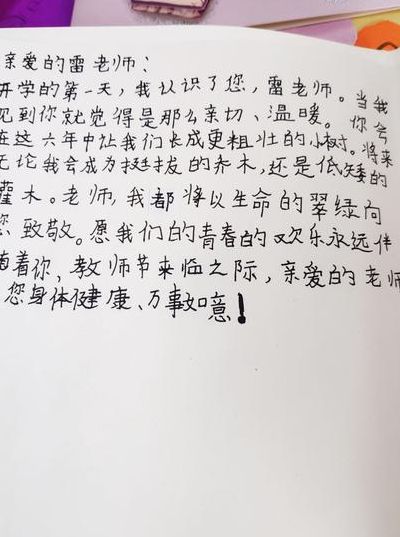 亲爱的雷老师:
开学的第一天,我认识了您,雷老师。当我
见到你就觉得是那么亲切、温暖。你会
在这六年中让我们长成更粗壮的小树。将来
无论我会成为挺拔的乔木,还是低矮的
灌木。老师,我都将以生命的翠绿向
您致敬。愿我们的青春的欢乐永远伴
随着你、教师节来临之际,亲爱的老师
您身体健康、万事如意!